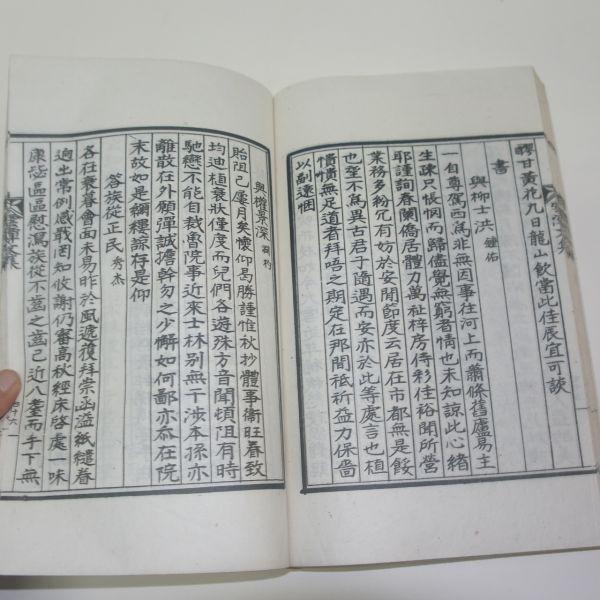 醪甘黃花九日龍山飮當此佳辰宜可談
書
與柳士洪 鍾佑
一自尊駕西爲非無因事在河上而蕭條舊廬易主
生疎只悵悃而歸儘覺無窮者情也未知諒此心緖
耶謹詢春闌僑居體力萬祉梓房侍彩佳裕聞所營
業務多粉冗有妨於安閒節度云居在市都無是餒
也窒不爲異古君子隨遇而安亦於此等處言也植
憒憒無足道者拜唔之期定在那間祗祈益力保嗇
以副遠悃
與權景深
貽阻已屢月矣懷仰曷勝謹惟秋抄體事衛旺眷致
均迪植衰狀僅度而兒們各遊殊方音聞頓阻有時
馳戀不能自裁魯院事近來士林別無干涉本孫亦
離散在外願彈誠擔幹勿之少懈如何鄙亦忝在院
末故如是縷縷諒存是仰
答族從正民 秀杰
各在衰暮會面未易昨於風遞獲拜崇函溢紙繾眷
逈出常例感戢罔知攸謝仍審高秋經床啓處一味
康
區區慰瀉族從不齒之齒已近八耋而手下無